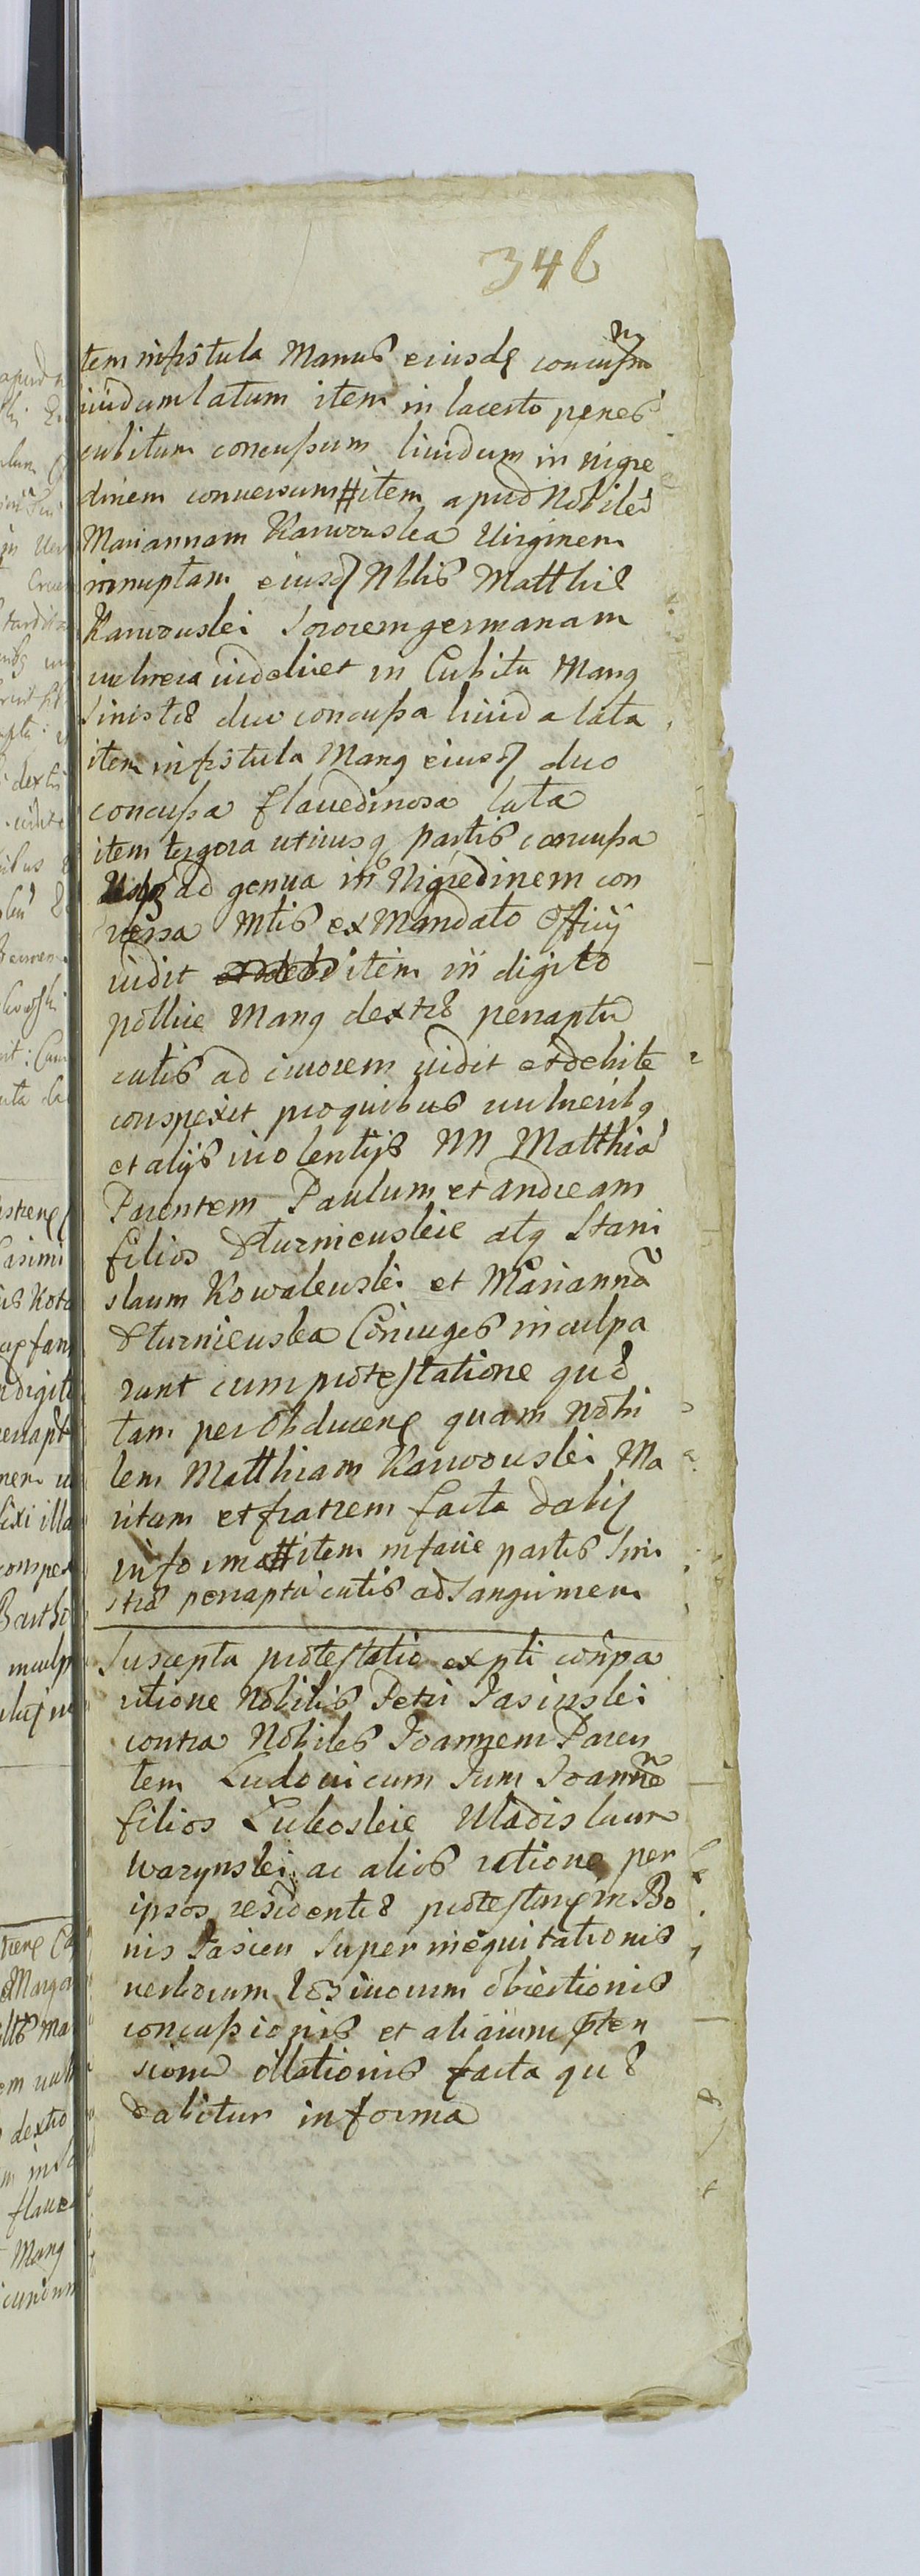 346
tem in fistula Manus eiusdē concussū
liuidum latum item in lacerto penes
cubitum concussum liuidum in nigre
dinem conuersum # item apud Nobilē
Mariannam Karwowska Uirginem
innuptam eiusd Nblis Matthiæ
Karwouski Sororem germanam
uulnera uidelicet in Cubitu Mang
Sinistræ duo concussa liuida lata
item in fistula Mang eiusd duo
concussa flauedinosa lata
item tergora utriusq partis concussa
Usq ad genua in Nigredinem con
uersa Mtis ex Mandato Officij
uidit item in digito
pollice Mang dextræ perraptū
cutis ad cruorem uidit et debite
conspexit pro quibus uulneribq
et alijs uiolentijs NN Matthiā
Parentem Paulum et Andream
filios Dturnieuskie atq Stani
slaum Kowaleuski et Mariannā
Dturnieuska Coniuges inculpa
runt cum protestatione quæ
tam per obducenę quam Nobi
lem Matthiam Karwouski Ma
ritum et fratrem facta dabiᷓ
in forma # item in facie partis Sini
stræ perraptū cutis ad sanguinem
Suscepta protestatio ex pti compa
ritione Nobilis Petri Jasinski
contra Nobiles Joannem Paren
tem Ludouicum Tum Joannē
filios Lukoskie Uladislaum
Warynski ac alios ratione per
ipsos residentiæ protestanę in Bo
nis Jasien Superinequitationis
uerborum lesiuorum obiectionis
concussionis et aliarum pten
sionū illationis facta quæ
dabitur in forma